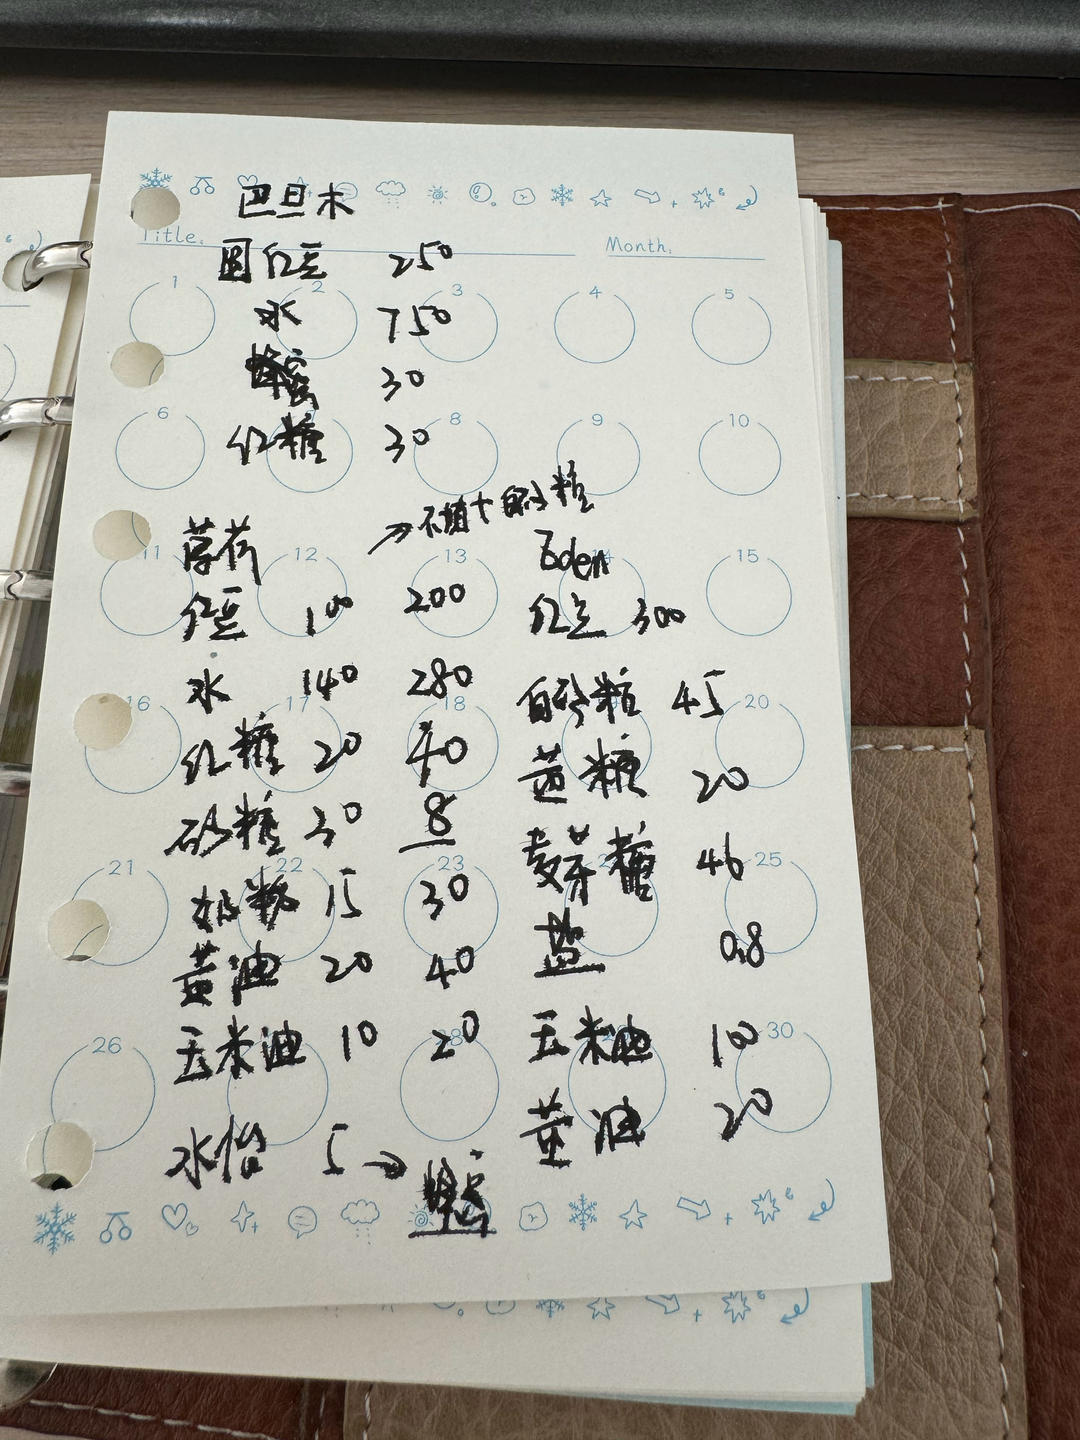 巴旦木
Title:
Month:
圆红豆 250
1 2 3 4 5
水 750
蜂蜜 30
6 8 9 10
红糖 30
薄荷
Eden
11 12 13 14 15
红豆 100 200
红豆 300
水 140 280
白砂糖 45
16 17 18 20
红糖 20 40
黄糖 20
砂糖 30 8
麦芽糖 46
21 22 23 25
奶粉 15 30
盐 0.8
黄油 20 40
玉米油 10 20
玉米油 100
26 28 30
黄油 20
水饴 5 → 蜂蜜